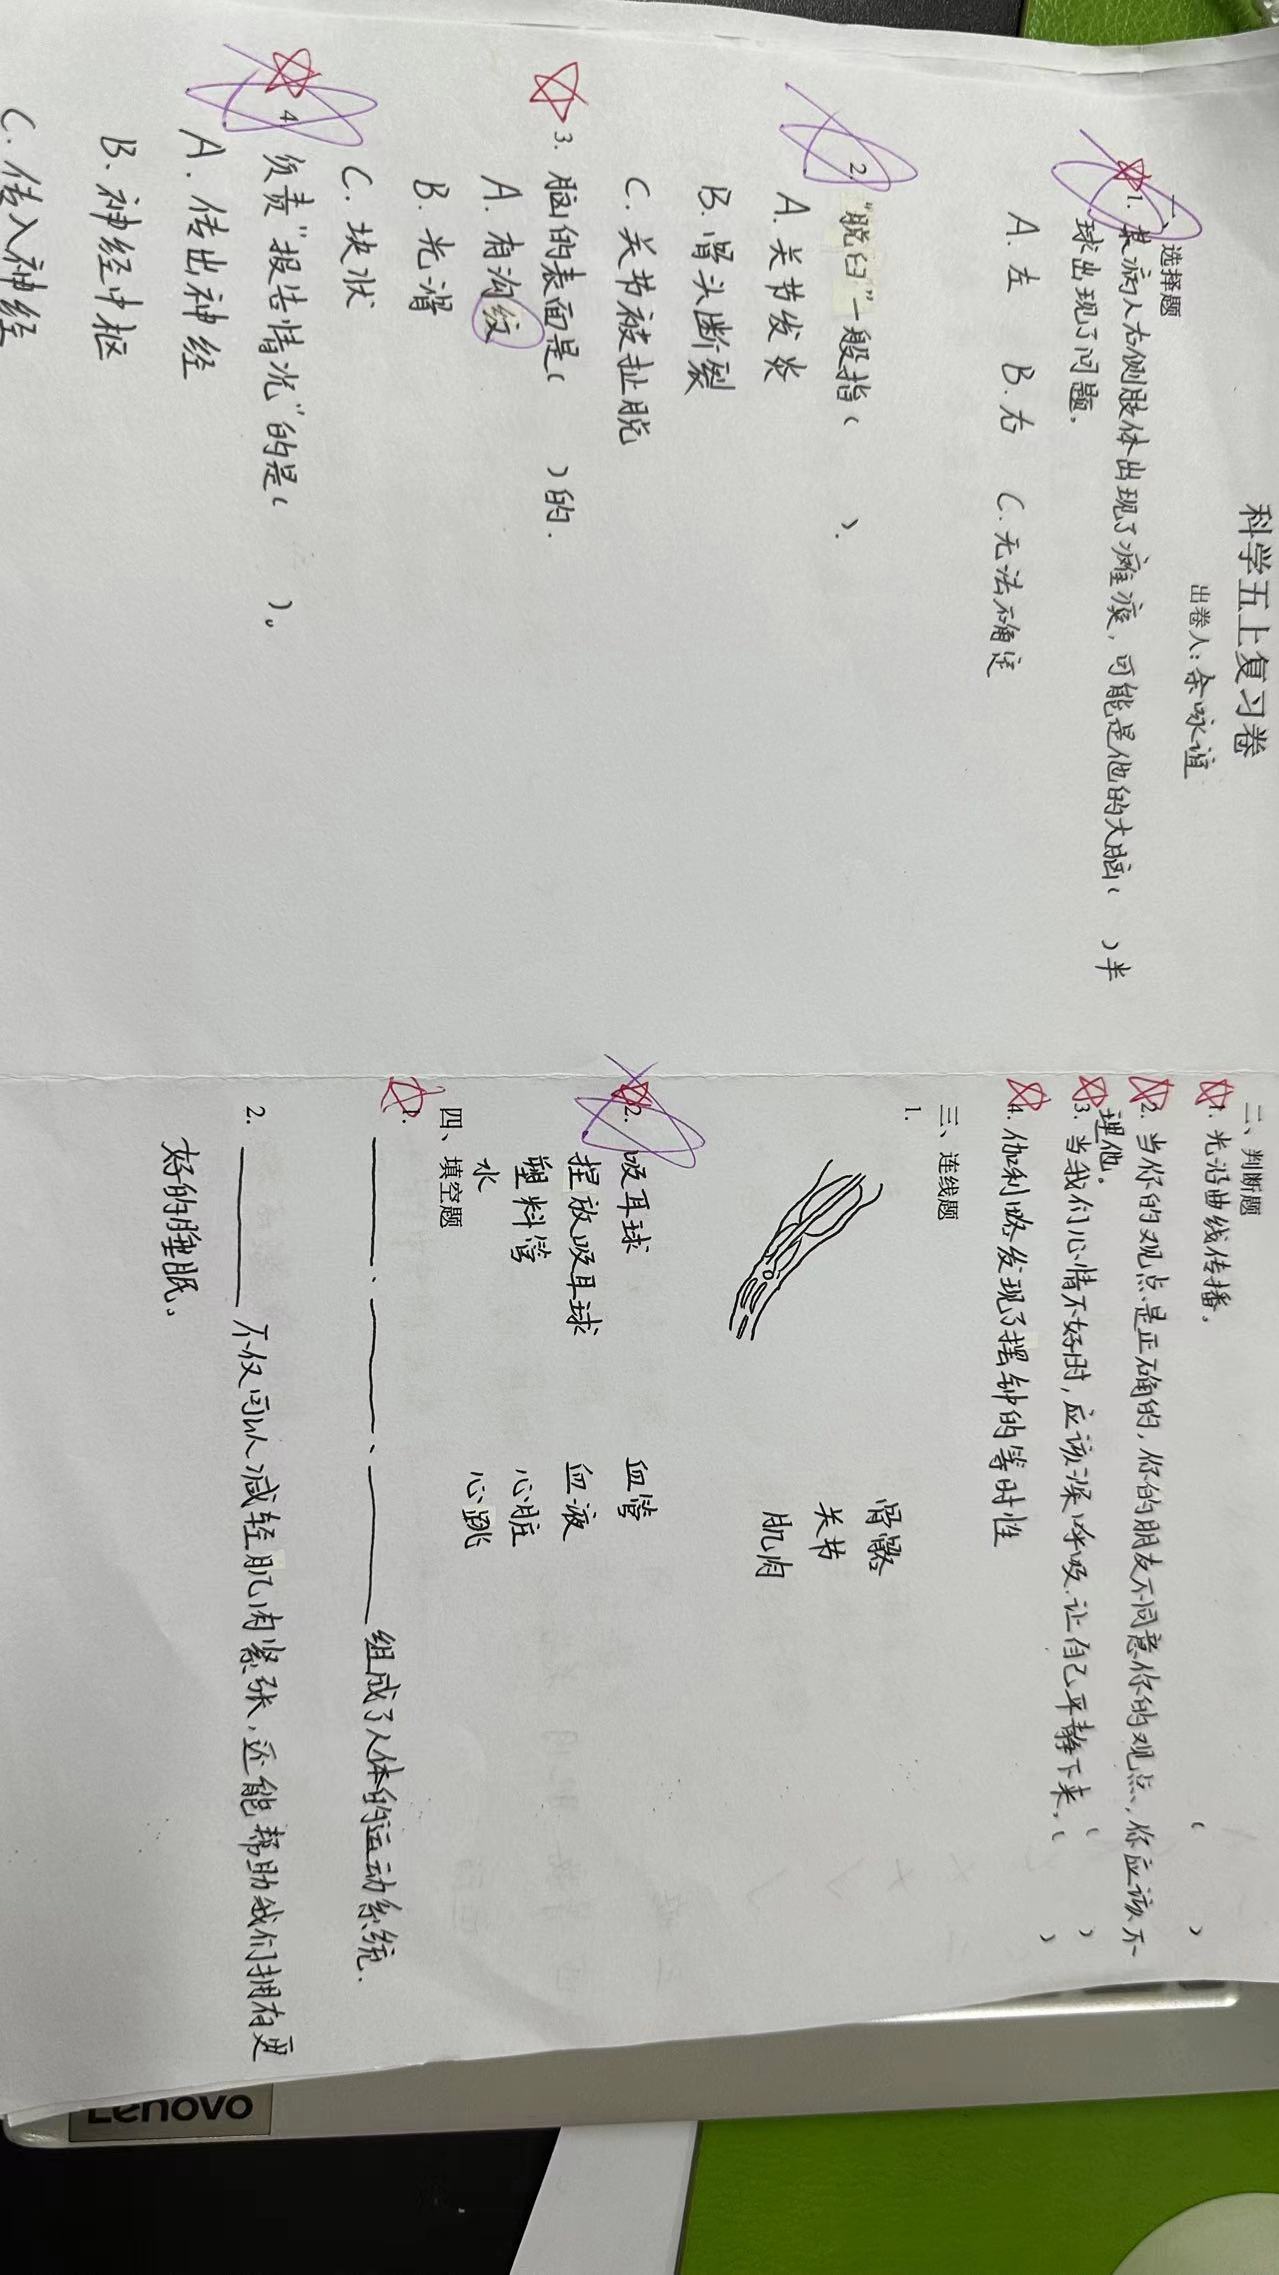 科学五上复习卷
出卷人:余咏谊
一、选择题
1. 某病人右侧肢体出现了瘫痪,可能是他的大脑( )半
球出现了问题。
A. 左 B. 右 C. 无法确定
2. "脱臼"一般指( ).
A. 关节发炎
B. 骨头断裂
C. 关节被扯脱
3. 脑的表面是( )的.
A. 有沟纹
B. 光滑
C. 块状
4. 负责"报告情况"的是( )。
A. 传出神经
B. 神经中枢
C. 传入神经
二、判断题
1. 光沿曲线传播。 ( )
2. 当你的观点是正确的,你的朋友不同意你的观点,你应该不
理他。 ( )
3. 当我们心情不好时,应该深呼吸.让自己平静下来。( )
4. 伽利略发现了摆钟的等时性
三、连线题
1.
骨骼
关节
肌肉
2. 吸耳球 血管
捏放吸耳球 血液
塑料管 心脏
水 心跳
四、填空题
1. ______、______、______组成了人体的运动系统.
2. ______不仅可以减轻肌肉紧张,还能帮助我们拥有更
好的睡眠。
Lenovo